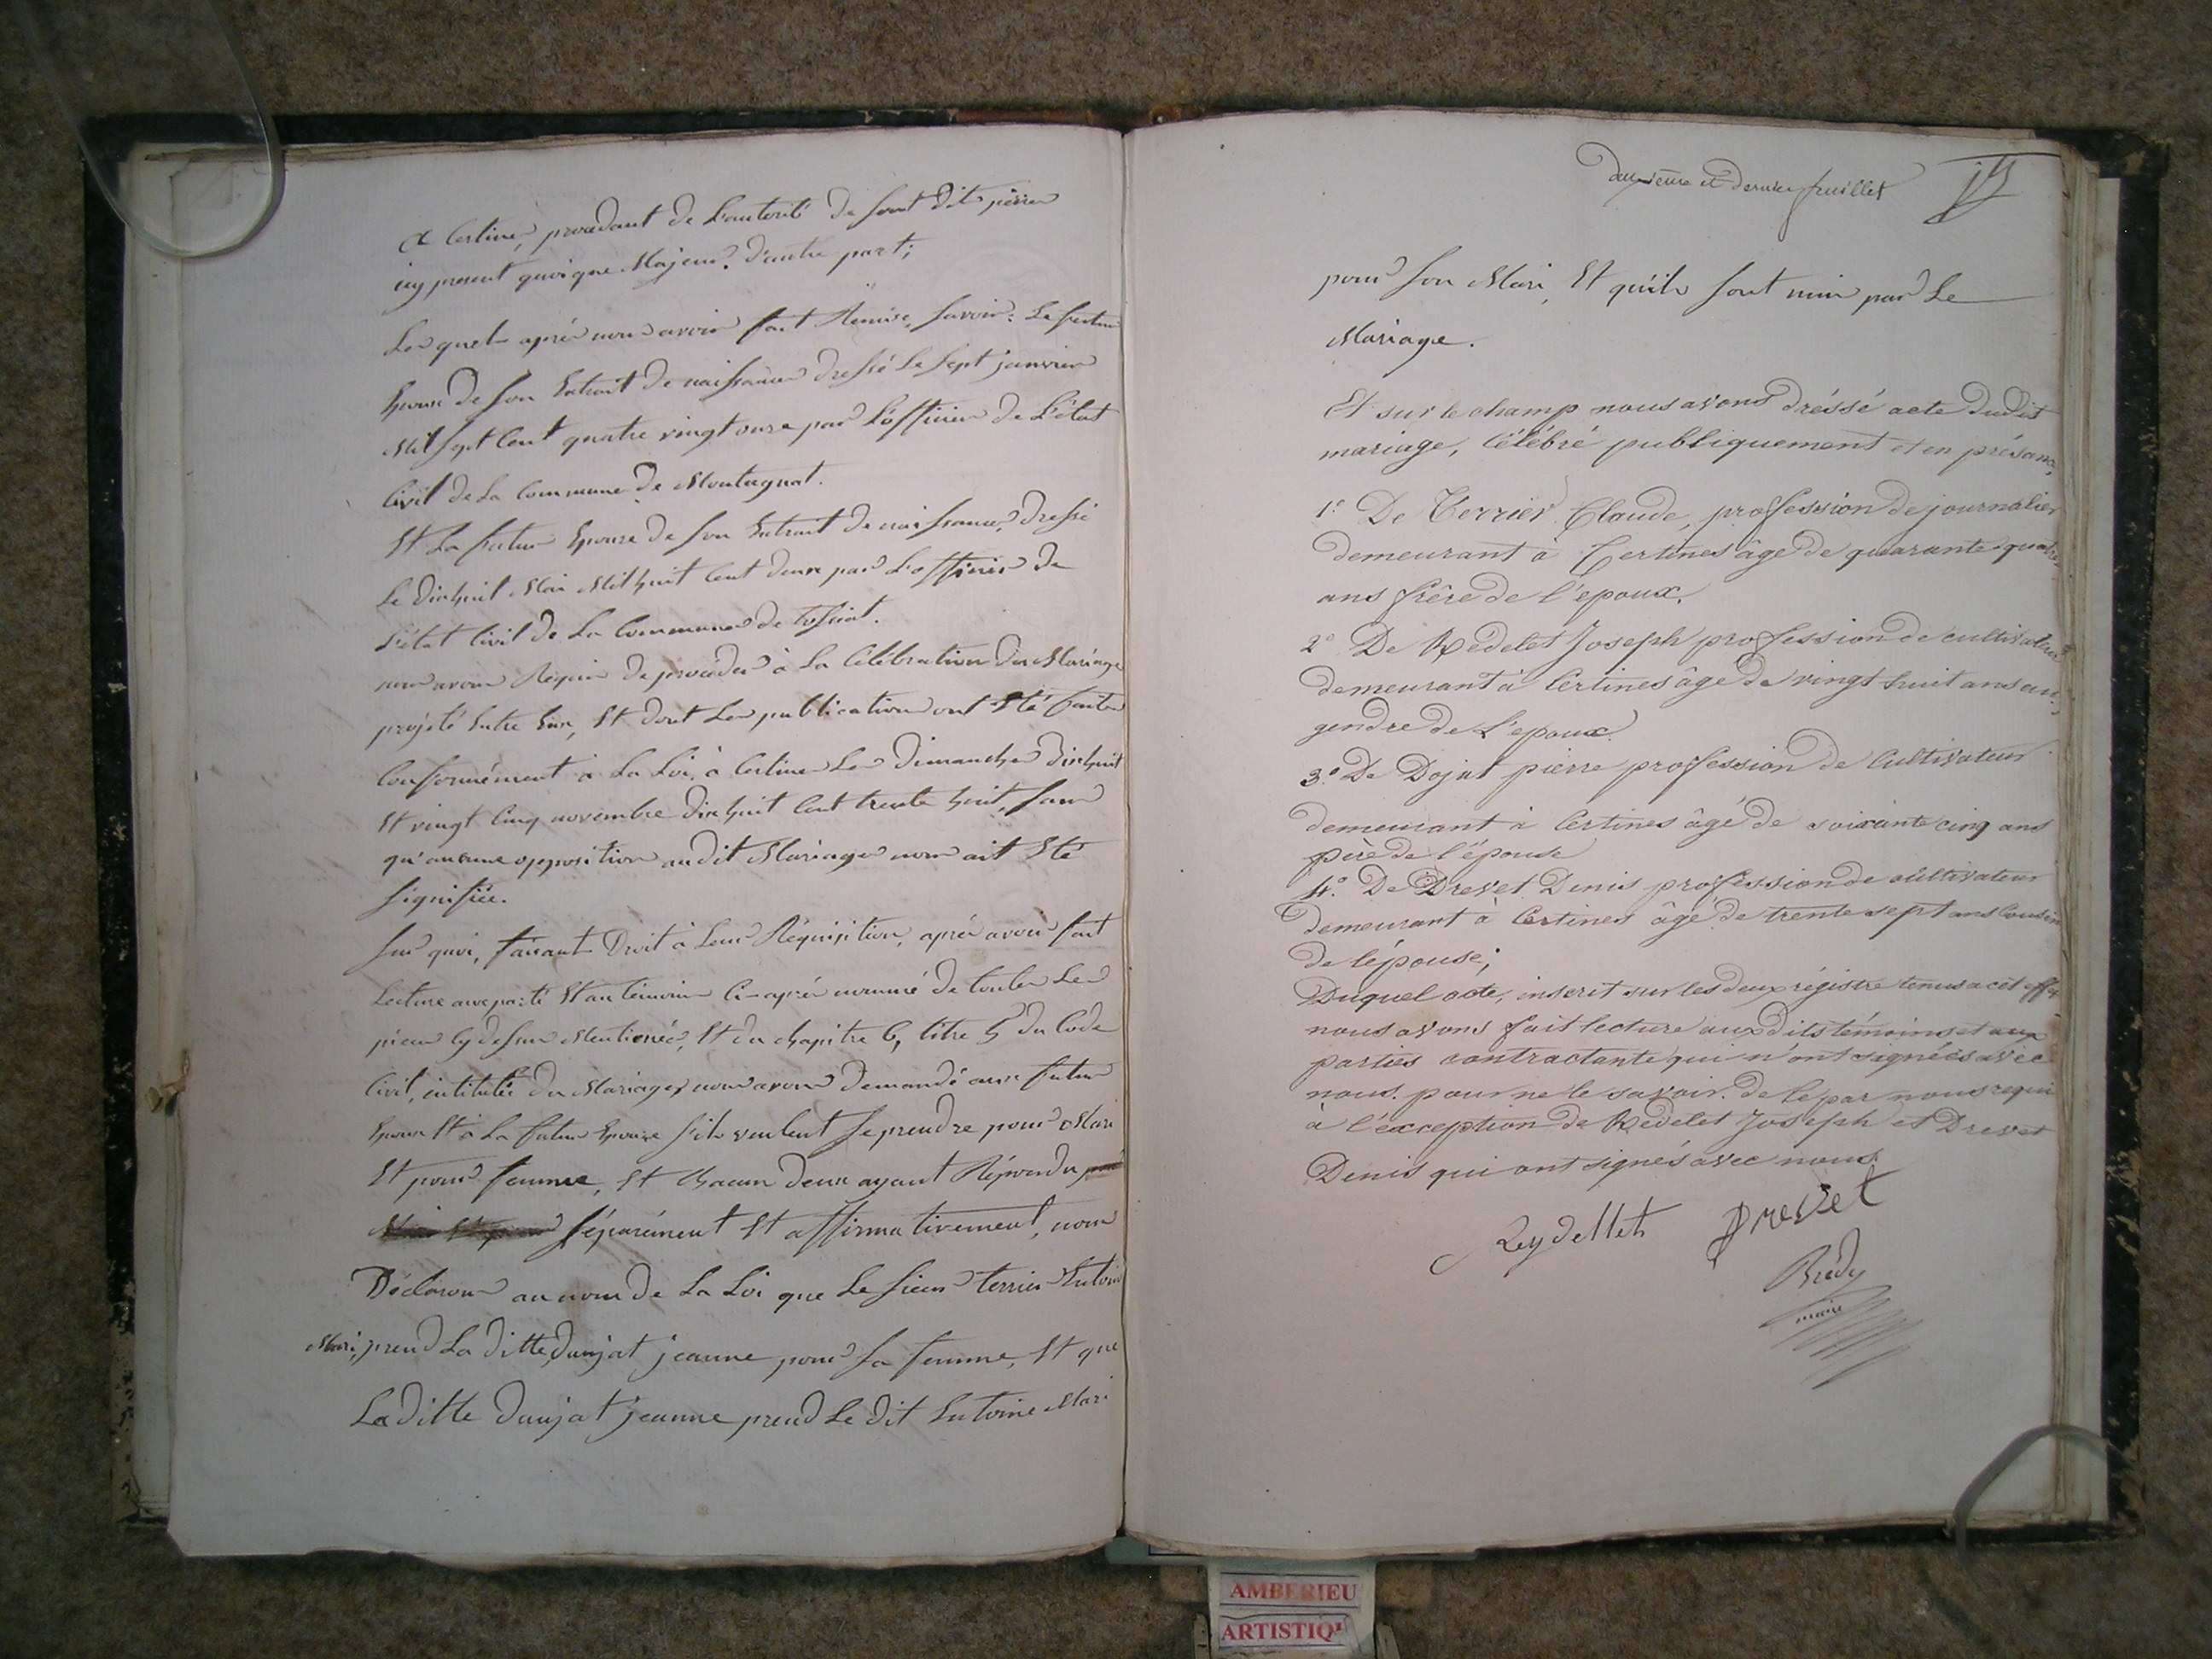 a Certines, procedant de L'autorité de son dit père
icy present quoique Majeur. d'autre part;
Lesquels après nous avoir fait Remise, Savoir: Le futur
Epoux de son Extrait de naissance dressé Le Sept janvier
Mil Sept Cent quatre vingt onze par L'officier de L'état
Civil de La Commune de Montagnat.
Et La future Epouse de son Extrait de naissance, dressé
Le dixhuit Mai Mil huit Cent deux par L'officier de
L'état Civil de La Commune de Tossiat.
nous avons Requis de procéder à La Célébration du Mariage
projeté Entre Eux, Et dont Les publications ont Eté faites
Conformément à La Loi, à Certines Les Dimanches dixhuit
Et vingt Cinq novembre dixhuit Cent trente huit, sans
qu'aucune opposition audit Mariage nous ait Eté
Signifiée.
Sur quoi, faisant Droit à Leur Réquisition, après avoir fait
Lecture aux parti Et aux témoins Ci-après nommé de toutes Les
pieces cy dessus Mentionée, Et du chapitre 6, titre 5 du Code
Civil, intitulée du Mariage, nous avons Demandé aux futur
Epoux Et à La future Epouse s'ils veulent se prendre pour Mari
Et pour femme, Et Chacun Deux ayant Répondu
séparément Et affirmativement, nous
Déclarons au nom de La Loi que Le Sieur terrier Entoine
Mari, prend La ditte Daujat jeanne pour sa femme, Et que
La ditte Daujat jeanne prend Le dit Entoine Mari
deuxième et dernier feuillet
pour son Mari, Et qu'ils sont unis par Le
Mariage.
Et sur le champ nous avons dréssé acte dudit
mariage, Célébré publiquement et en présance,
1.° De Terrier Claude, profession de journalier
demeurant à Certines âgé de quarante quatre
ans frère de l'epoux.
2° De Redelet Joseph profession de cultivateur
demeurant à Certines âgé de vingt huit ans
gendre de L'epoux.
3.° De Dojat pierre profession de Cultivateur
demeurant à Certines âgé de soixante cinq ans
père de l'épouse
4.° De Drevet Denis profession de cultivateur
demeurant à Certines âgé de trente sept ans Cousin
de lépouse;
Duquel acte, inscrit sur les deux régistre tenus a cet effet
nous avons fait lecture aux dits témoins et aux
parties contractante qui n'ont signées avec
nous. pour ne le savoir. de le par nous requi
à l'éxception de Redelet Joseph et Drevet
Denis qui ont signés avec nous.
Reydellet Drevet
Bredy
maire
AMBERIEU
ARTISTIQ